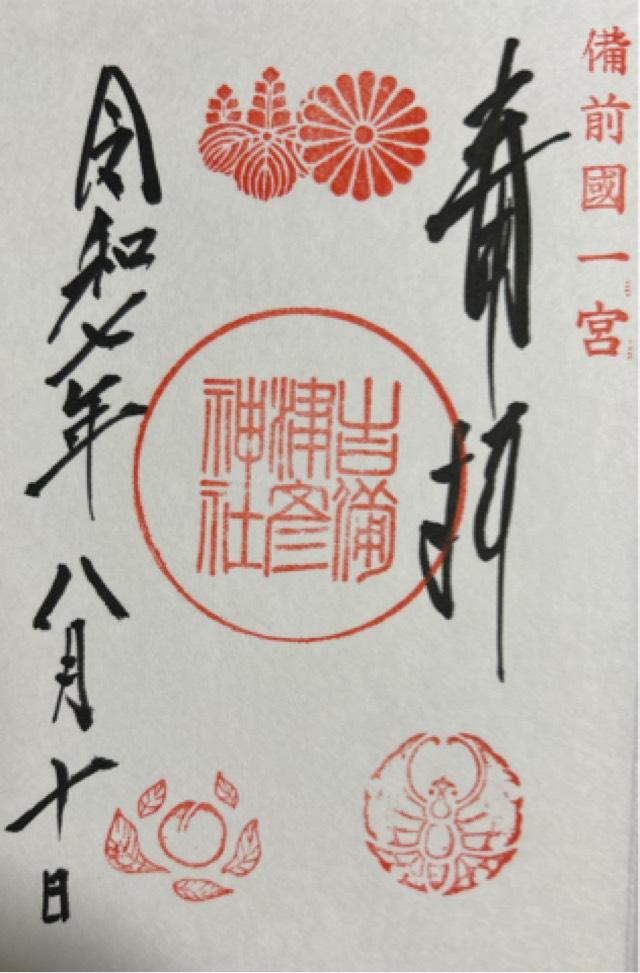 備前國一宮
奉拝
吉備
津彦
神社
令和七年八月十日